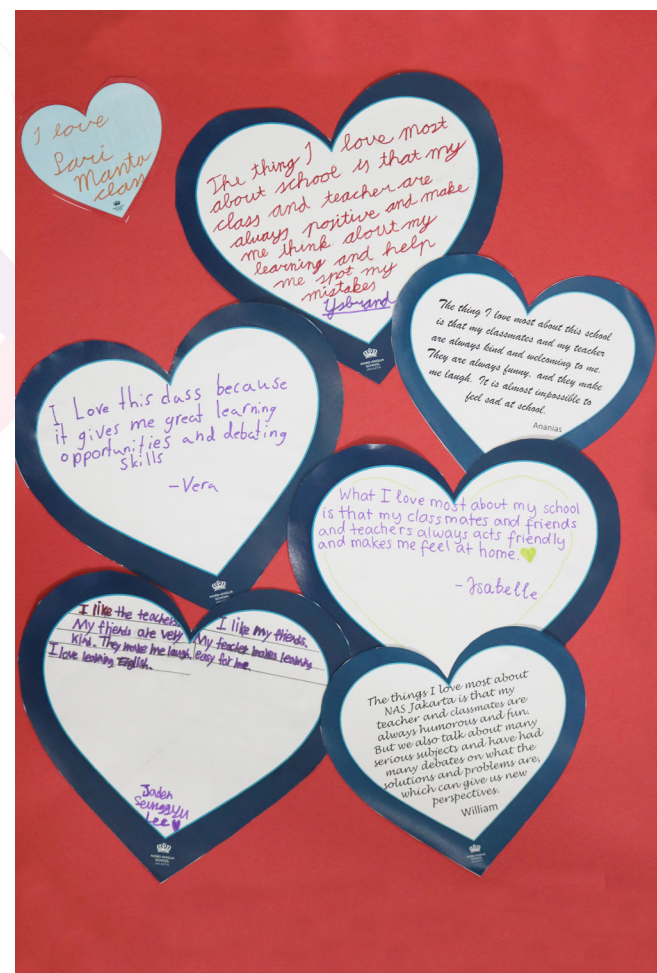 I love
Sari
Manta
class
The thing I love most
about school is that my
class and teacher are
always positive and make
me think about my
learning and help
me spot my
mistakes
Ysbrand
The thing I love most about this school
is that my classmates and my teacher
are always kind and welcoming to me.
They are always funny, and they make
me laugh. It is almost impossible to
feel sad at school.
Ananias
I Love this class because
it gives me great learning
opportunities and debating
skills
-Vera
NORD ANGLIA
SCHOOL
JAKARTA
What I love most about my school
is that my classmates and friends
and teachers always acts friendly
and makes me feel at home.
- Isabelle
I like the teachers.
My friends are very
kind. They make me laugh.
I love learning English.
I like my friends.
My teacher makes learning
easy for me.
Jaden
Seunggyu
Lee
NORD ANGLIA
SCHOOL
JAKARTA
The things I love most about
NAS Jakarta is that my
teacher and classmates are
always humorous and fun.
But we also talk about many
serious subjects and have had
many debates on what the
solutions and problems are,
which can give us new
perspectives.
William
NORD ANGLIA
SCHOOL
JAKARTA